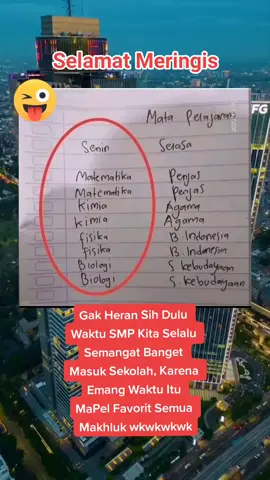 Selamat Meringis
Mata Pelajaran
Senin Selasa
Matematika Penjas
Matematika Penjas
Kimia Agama
Kimia Agama
Fisika B. Indonesia
Fisika B. Indonesia
Biologi S. kebudayaan
Biologi S. kebudayaan
FG
Gak Heran Sih Dulu
Waktu SMP Kita Selalu
Semangat Banget
Masuk Sekolah, Karena
Emang Waktu Itu
MaPel Favorit Semua
Makhluk wkwkwkwk